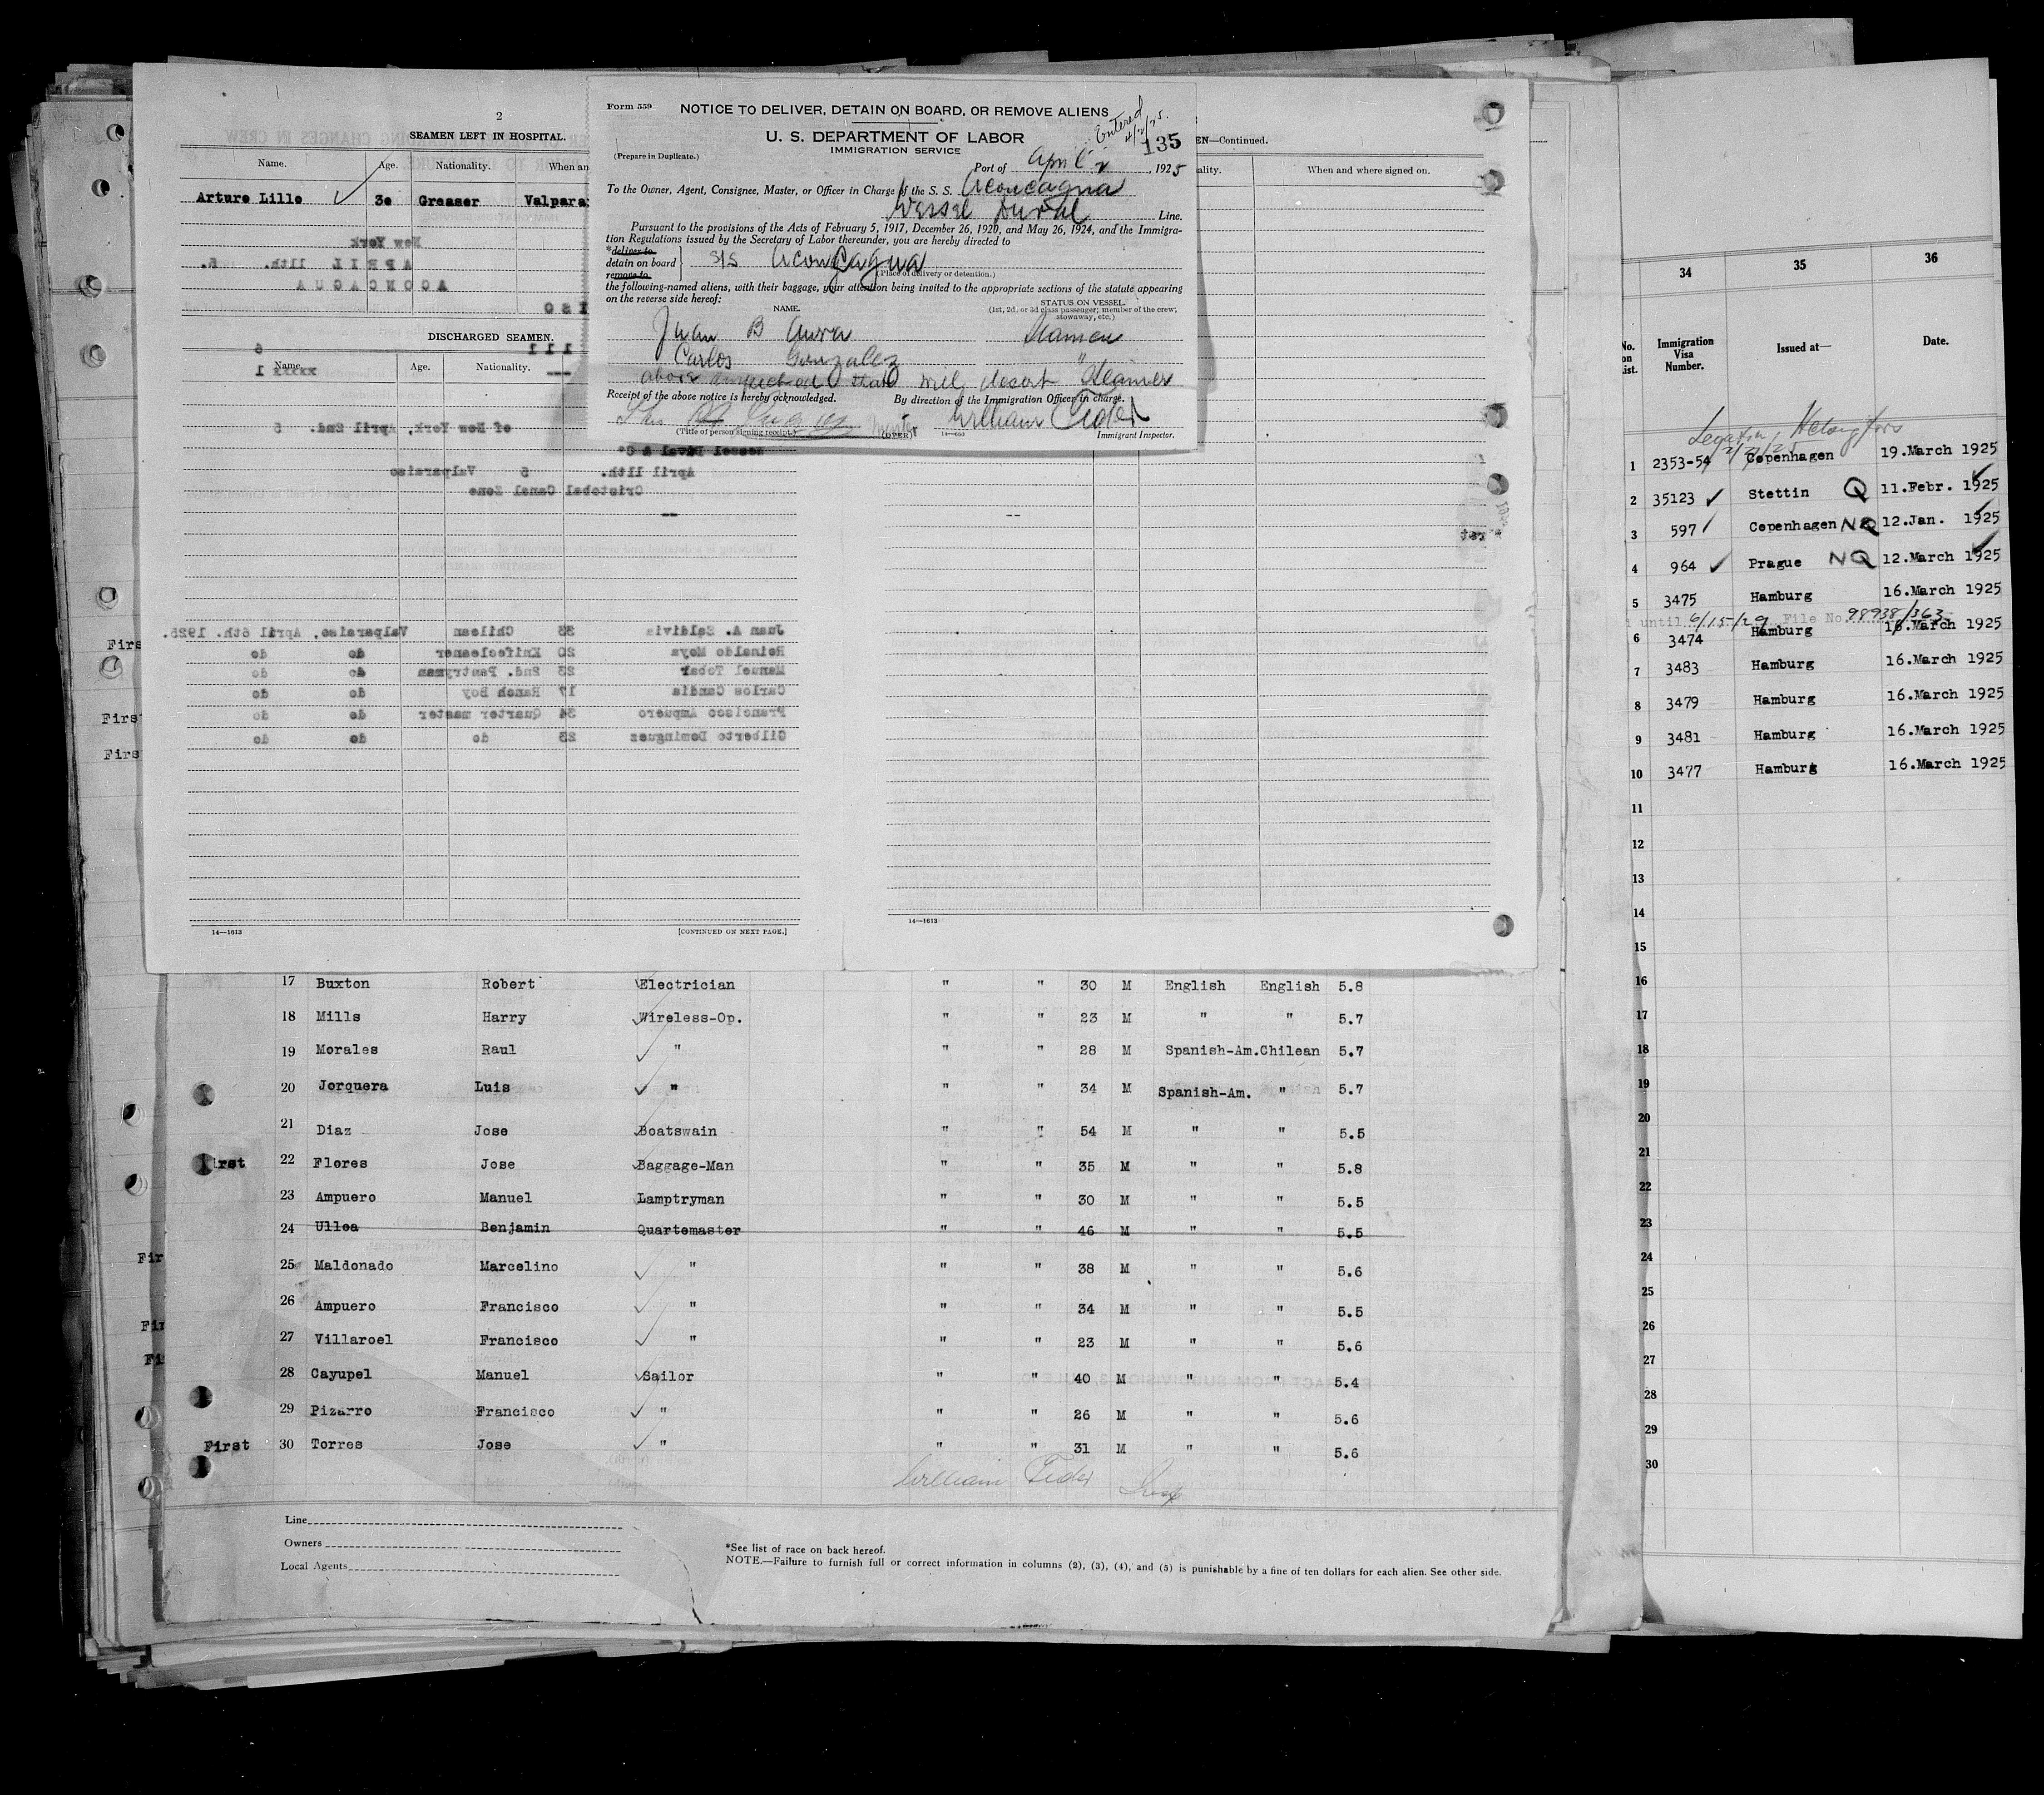 2
SEAMEN LEFT IN HOSPITAL.
Name. Age. Nationality. When an
Arture Lille 3o Greaser Valpara
New York
APRIL 11th. 5.
ACONCAGUA
DISCHARGED SEAMEN.
6 111
Name. Age. Nationality.
xxxxx 1
of New York, April 2nd. 5
Wessel Duval & Cº
April 11th. 5 Valparaiso
Cristobal Canal Zone
--
Juan A. Saldivia 33 Chilean Valparaiso, April 6th. 1925.
Reinaldo Moya 20 Knifecleaner do do
Manuel Tobar 23 2nd. Pantryman do do
Carlos Candia 17 Ranch Boy do do
Francisco Ampuero 34 Quarter master do do
Gilberto Dominguez 23 do do do
14—1613 [CONTINUED ON NEXT PAGE.]
Form 559
NOTICE TO DELIVER, DETAIN ON BOARD, OR REMOVE ALIENS
Entered
4/2/25.
135
U. S. DEPARTMENT OF LABOR
IMMIGRATION SERVICE
(Prepare in Duplicate.)
Port of April 2, 1925
To the Owner, Agent, Consignee, Master, or Officer in Charge of the S. S. Aconcagua
Wessel Duval Line.
Pursuant to the provisions of the Acts of February 5, 1917, December 26, 1920, and May 26, 1924, and the Immigra-
tion Regulations issued by the Secretary of Labor thereunder, you are hereby directed to
*deliver to
detain on board } S/S Aconcagua
remove to (Place of delivery or detention.)
the following-named aliens, with their baggage, your attention being invited to the appropriate sections of the statute appearing
on the reverse side hereof:
STATUS ON VESSEL.
NAME. (1st, 2d, or 3d class passenger; member of the crew,
stowaway, etc.)
Juan B Seamen
Carlos Gonzalez "
above suspected that will desert Steamer
Receipt of the above notice is hereby acknowledged. By direction of the Immigration Officer in charge.
Master William Feder
(Title of person signing receipt.) (OVER) 14—660 Immigrant Inspector.
EN—Continued.
ality. When and where signed on.
--
* rst
14—1613
First
First
First
17 Buxton Robert Electrician " " 30 M English English 5.8
18 Mills Harry Wireless-Op. " " 23 M " " 5.7
19 Morales Raul " " " 28 M Spanish-Am. Chilean 5.7
20 Jorquera Luis " " " 34 M Spanish-Am. " 5.7
21 Diaz Jose Boatswain " " 54 M " " 5.5
First 22 Flores Jose Baggage-Man " " 35 M " " 5.8
23 Ampuero Manuel Lamptryman " " 30 M " " 5.5
24 Ulloa Benjamin Quartemaster " " 46 M " " 5.5
25 Maldonado Marcelino " " " 38 M " " 5.6
26 Ampuero Francisco " " " 34 M " " 5.5
27 Villaroel Francisco " " " 23 M " " 5.6
28 Cayupel Manuel Sailor " " 40 M " " 5.4
29 Pizarro Francisco " " " 26 M " " 5.6
First 30 Torres Jose " " " 31 M " " 5.6
William Feder Insp
Line
Owners
Local Agents
*See list of race on back hereof.
NOTE.—Failure to furnish full or correct information in columns (2), (3), (4), and (5) is punishable by a fine of ten dollars for each alien. See other side.
34 35 36
No. on List. Immigration Visa Number. Issued at— Date.
Legation, Helsingfors
2/21/25
1 2353-54 Copenhagen 19.March 1925
2 35123 Stettin Q 11.Febr. 1925
3 597 Copenhagen NQ 12.Jan. 1925
4 964 Prague NQ 12.March 1925
5 3475 Hamburg 16.March 1925
until 6/15/29 File No. 98938/363
6 3474 Hamburg 16.March 1925
7 3483 Hamburg 16.March 1925
8 3479 Hamburg 16.March 1925
9 3481 Hamburg 16.March 1925
10 3477 Hamburg 16.March 1925
11
12
13
14
15
16
17
18
19
20
21
22
23
24
25
26
27
28
29
30